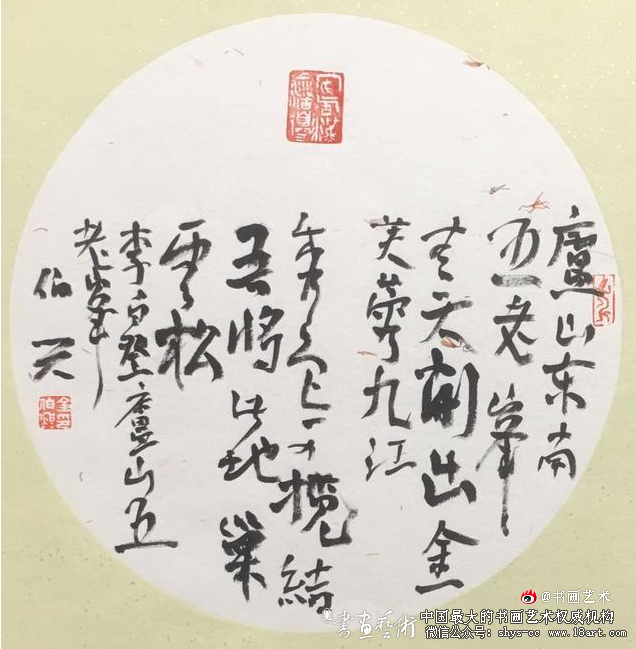 廬山东南
五老峯
青天削出金
芙蓉九江
秀色可攬結
吾將此地巢
雲松
李白登廬山五
老峯
伯
@书画艺术
書画藝術
中国最大的书画艺术权威机构
微信公众号：shys-cc www.18art.com